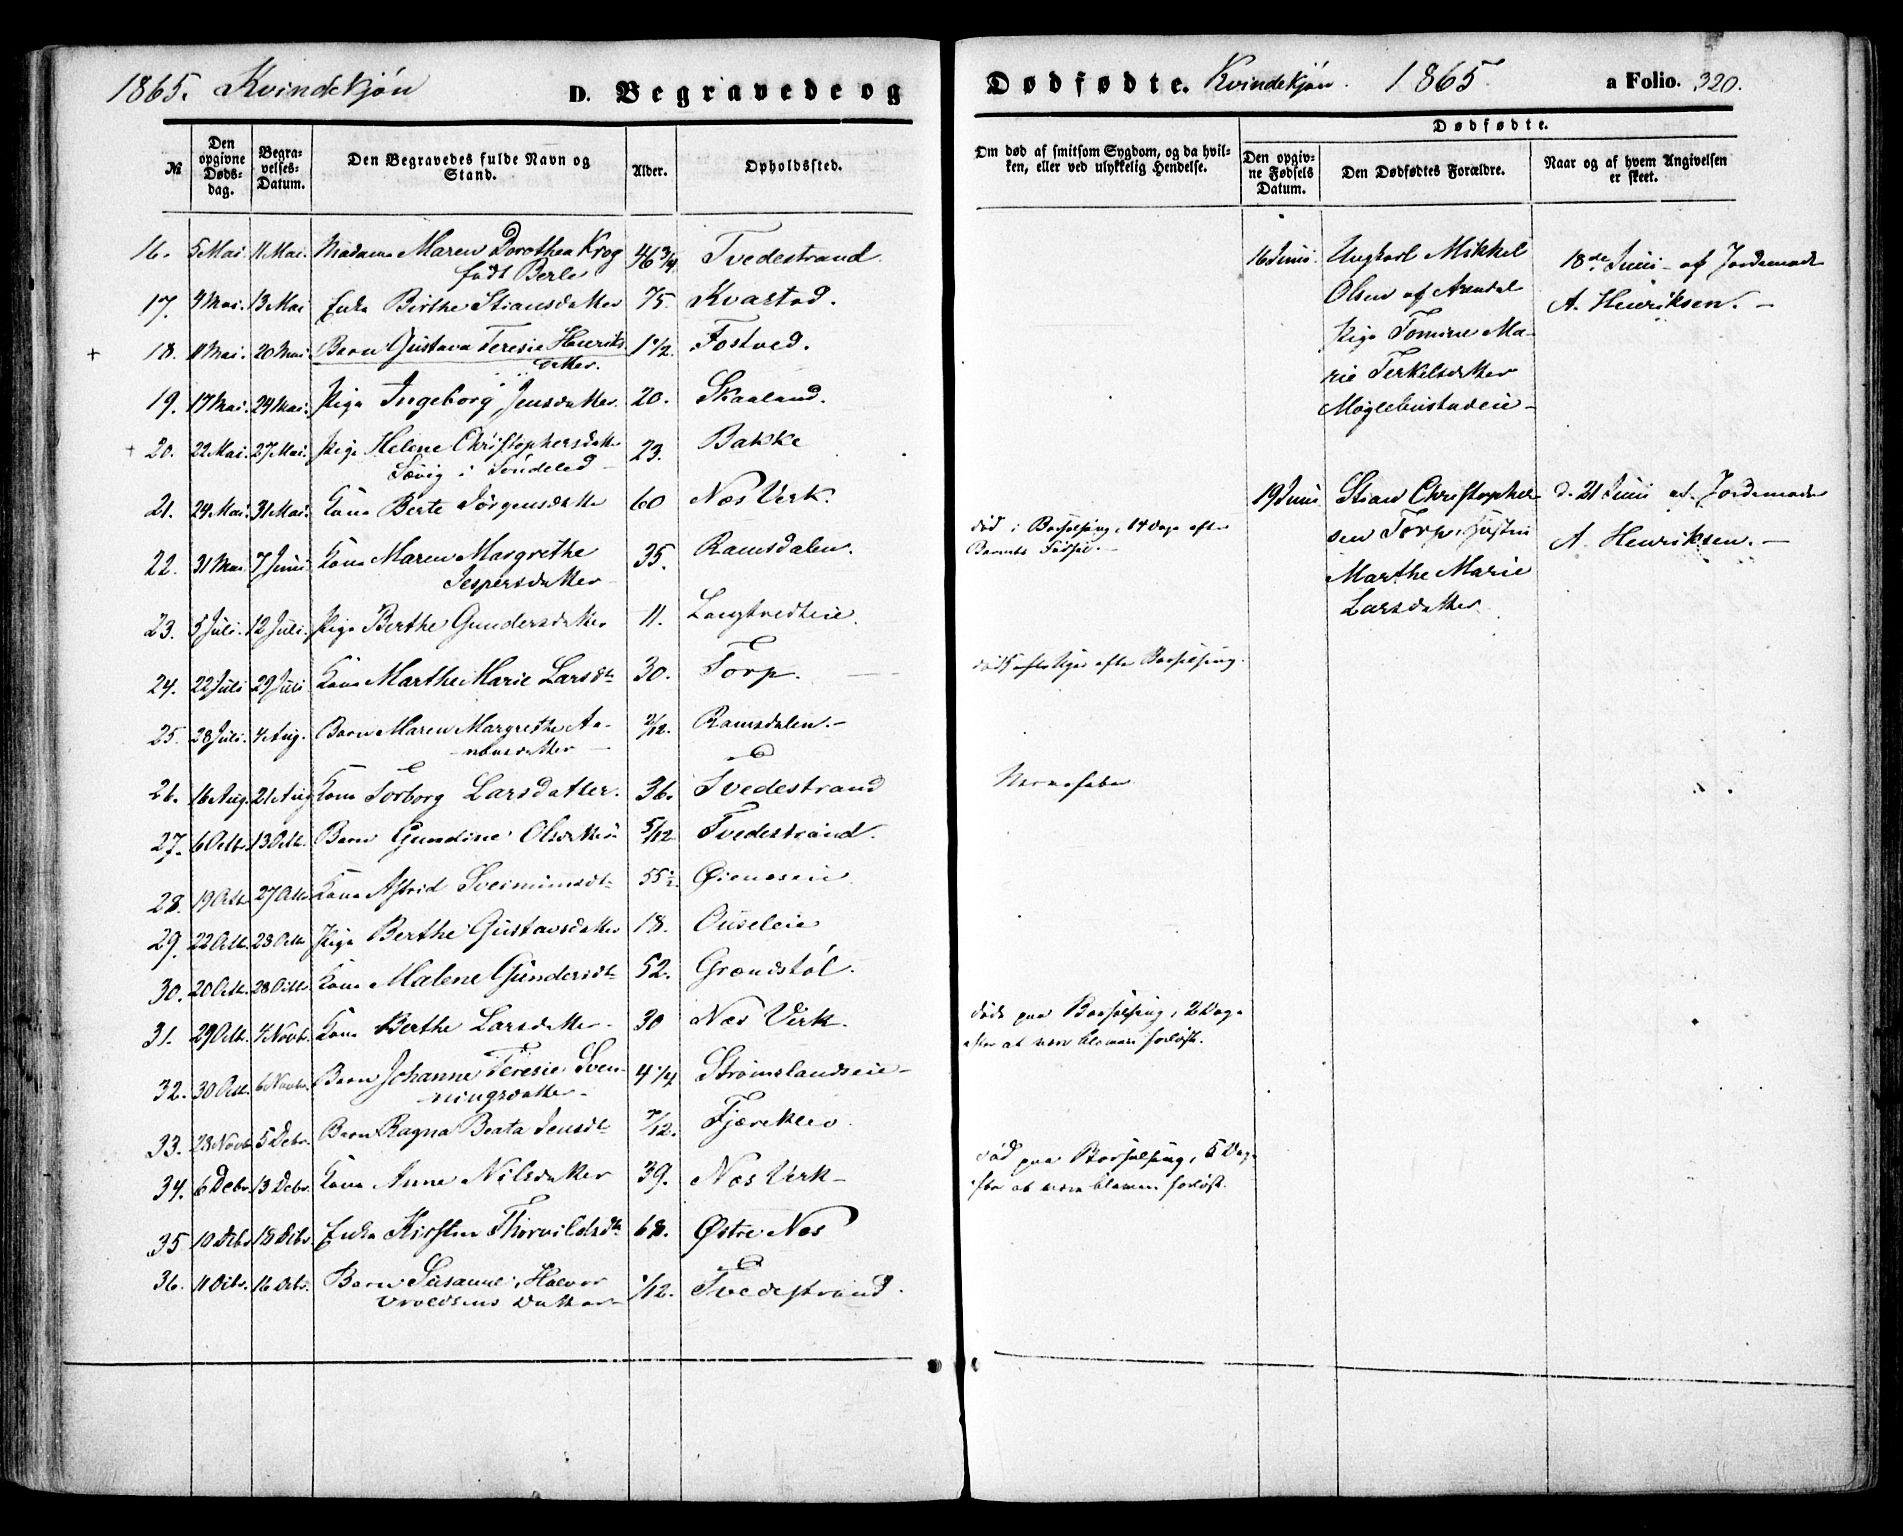 1865. Kvindekjøn D. Begravede og
№ Den opgivne Dødsdag. Begravelses-Datum. Den Begravedes fulde Navn og Stand. Alder. Opholdssted.
16. 5 Mai 11 Mai. Madame Maren Dorothea Krog 46 3/4 Tvedestrand
født Berle
17. 9 Mai. 13 Mai Enke Birthe Stiansdatter 75. Kvastad.
18. 11 Mai. 20 Mai Barn Gustava Teresie Henriks- 1 1/2. Fostved.
datter.
19. 17 Mai. 24 Mai. Pige Ingeborg Jensdatter 20. Skaaland.
20. 22 Mai. 27 Mai. Pige Helene Christophersdatter 23. Bakke
Sævig i Søndeled
21. 24 Mai. 31 Mai. Kone Berte Jørgensdatter 60 Næs Værk.
22. 31 Mai 7 Juni Kone Maren Margrethe 35. Ramsdalen.
Jespersdatter
23. 5 Juli. 12 Juli. Pige Berthe Gundersdatter 11. Langtvedteie.
24. 22 Juli 29 Juli Kone Marthe Marie Larsdtr 30. Torp.
25. 28 Juli. 4 Aug. Barn Maren Margrethe Aa- 2/12. Ramsdalen.
nonsdatter
26. 16 Aug. 21 Aug Kone Torborg Larsdatter. 36. Tvedestrand
27. 6 Octb. 13 Octb. Barn Gundine Olsdatter 5/12 Tvedestrand.
28. 19 Octb. 27 Octb Kone Astrid 55 1/2. Øieneseie.
29. 22 Octb. 28 Octb Pige Berthe Gustavsdatter 18. Ouseleie
30. 20 Octb. 28 Octb. Kone Malene Gundersdtr 52. Grændstøl.
31. 29 Octb. 4 Novb. Kone Berthe Larsdatter. 30 Næs Værk.
32. 30 Octb. 6 Novb. Barn Johanne Teresie Sven- 4 1/4 Strømslandseie
ningsdatter
33. 23 Novb 5 Debr. Barn Ragna Beata Jensdtr 7/12. Fjæreklev.
34. 6 Debr. 13 Debr. Kone Anne Nilsdatter 39. Næs Værk
35 10 Debr 18 Debr. Enke Kirsten Thorvildsdtr 68. Østre Næs
36. 11 Debr. 16 Debr. Barn Susanne, Halvor 1/12. Tvedestrand.
Vroldsens Datter
Dødfødte. Kvindekjøn. 1865. a Folio. 320.
Om død af smitsom Sygdom, og da hvilken, eller ved ulykkelig Hendelse.
Dødfødte.
Den opgivne Fødsels Datum. Den Dødfødtes Forældre. Naar og af hvem Angivelsen er skeet.
16 Juni Ungkarl Mikkel 18de Juni af Jordemoder
Olsen af Arendal A. Henriksen.
Pige Tomine Ma-
rie Terkelsdatter
Møglebustadeie
19 Juni Stian Christopher- d. 21 Juni af Jordemoder
sen Torp, Hustru A. Henriksen.
Marthe Marie
Larsdatter.
død i Barselseng, 14 Dage efter
Barnets Fødsel.
død efter Barselseng.
Nervefeber
døde paa Barselseng, 2 Dage
efter at være bleven forløst.
død paa Barselseng, 5 Dage
efter at være bleven forløst.